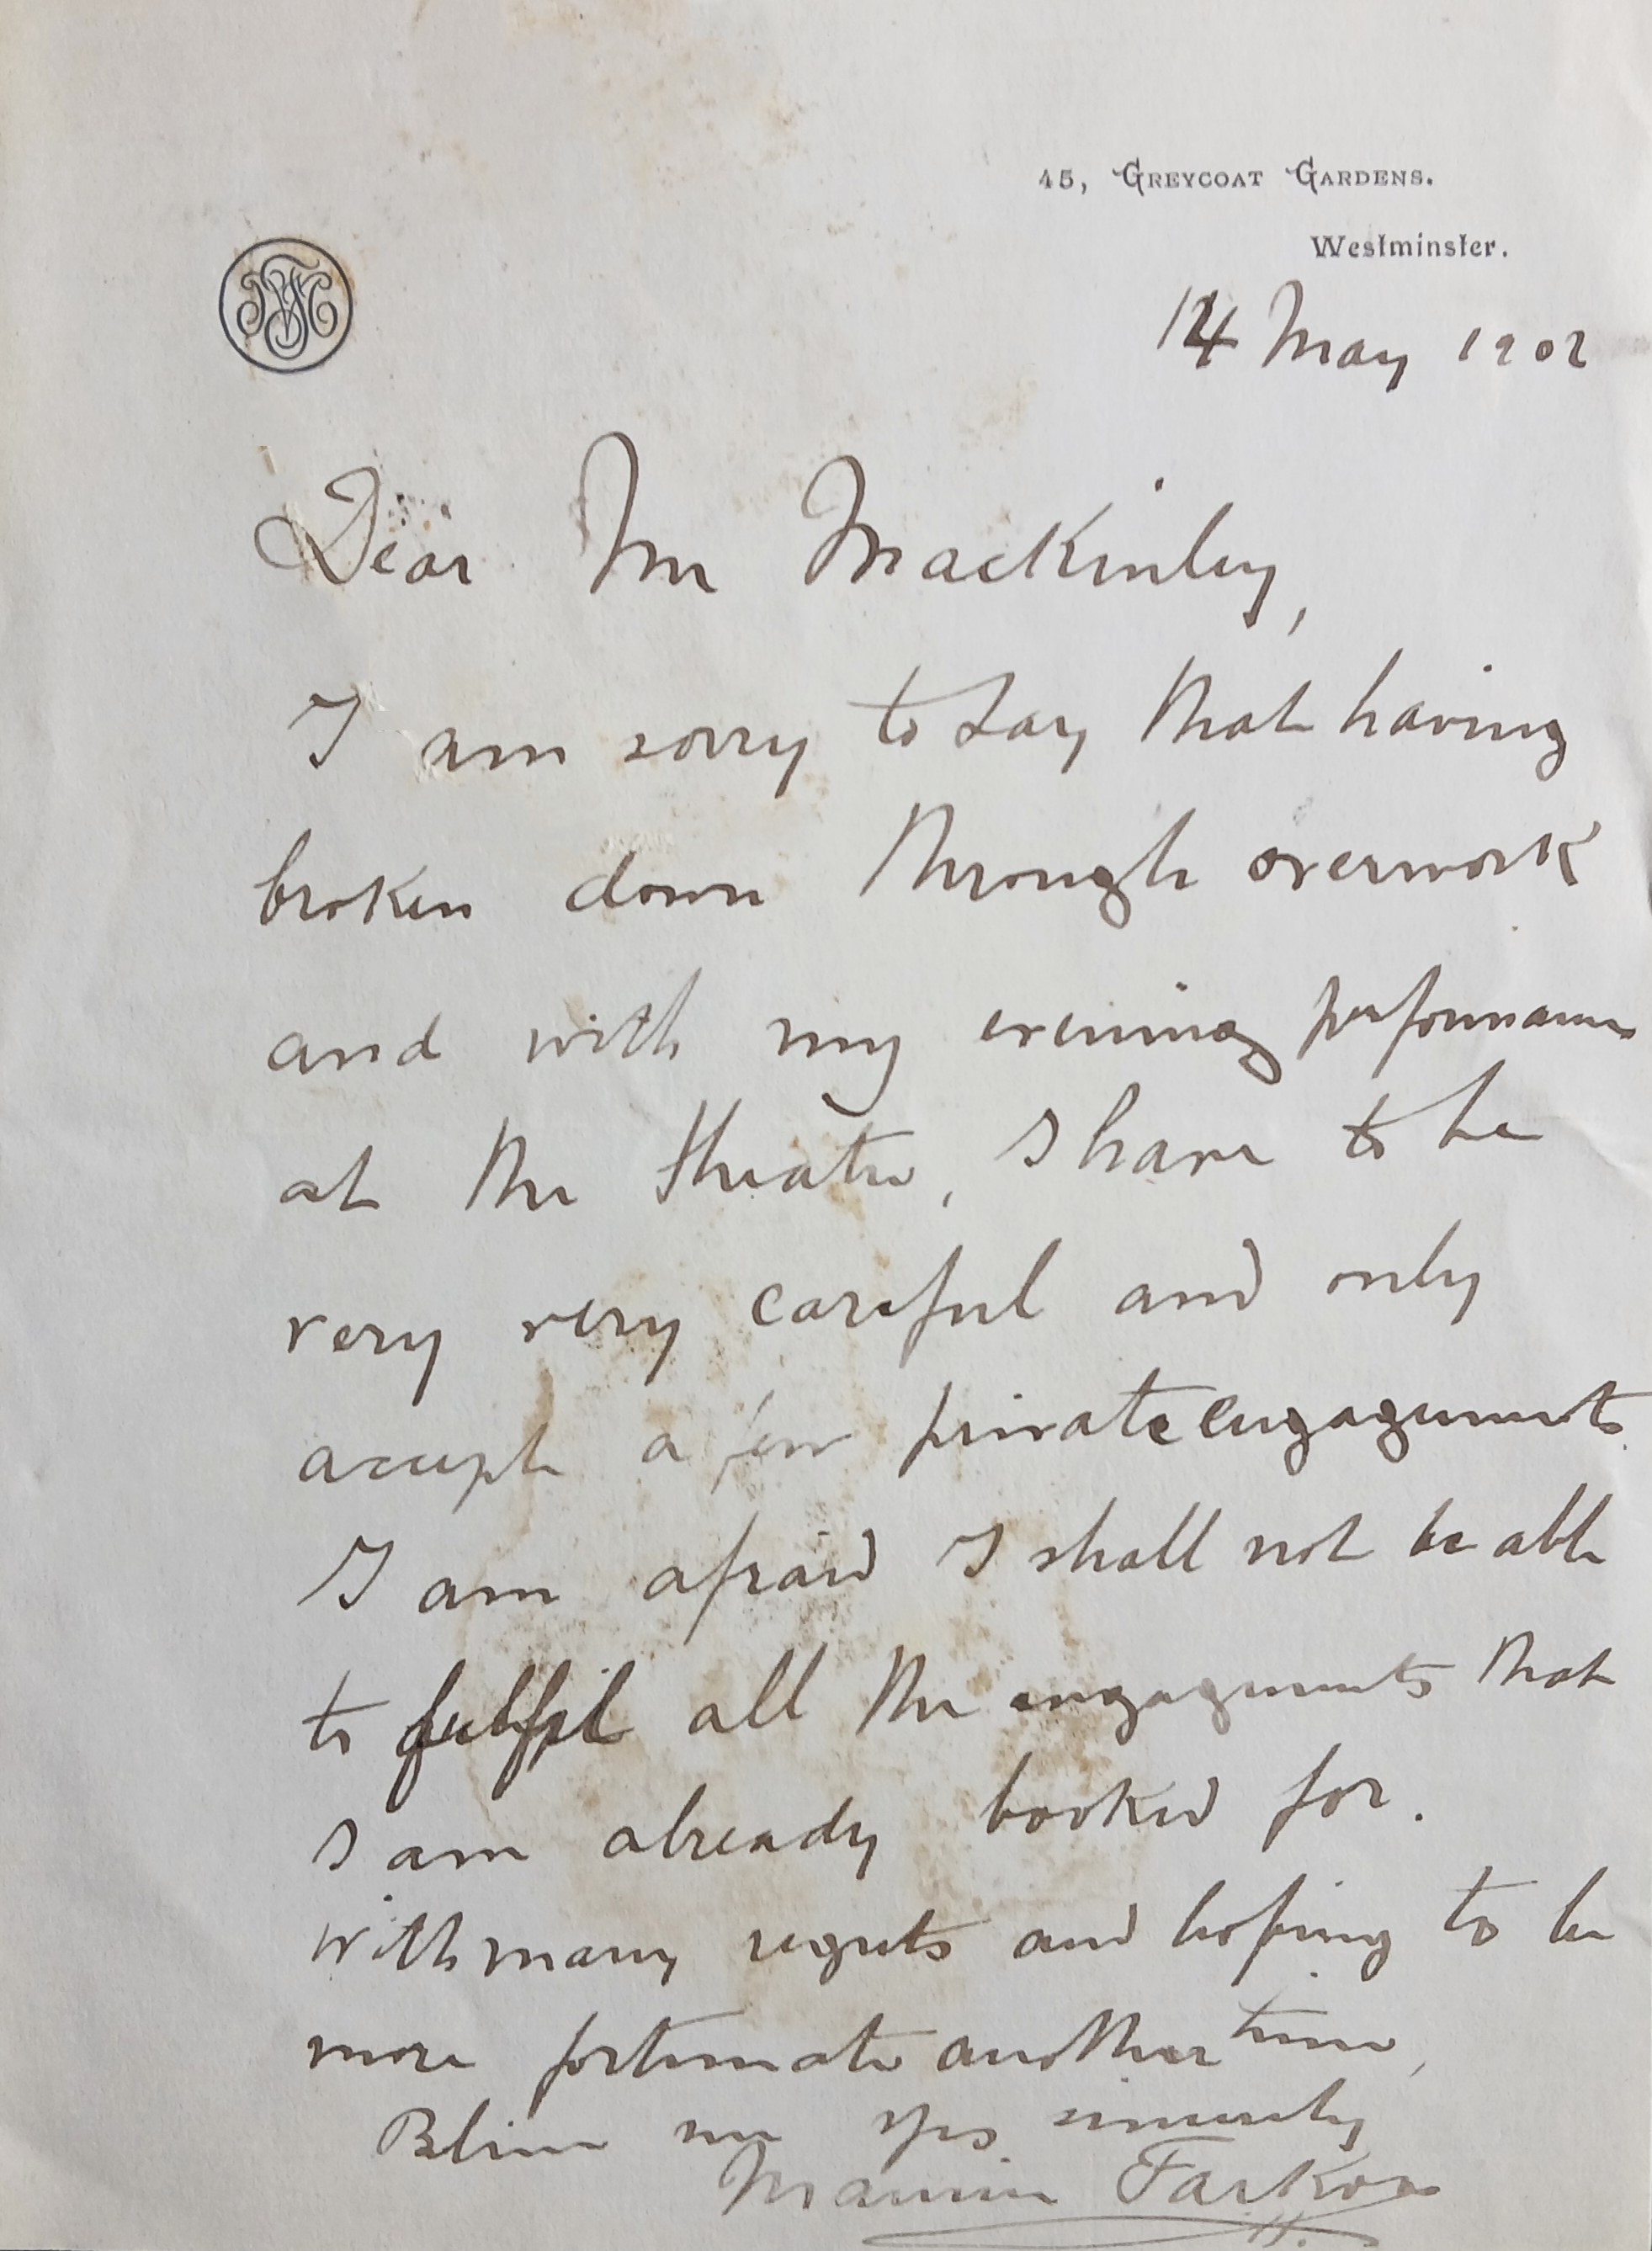 45, Greycoat Gardens.
Westminster.
14 May 1902
Dear Mr Mackinley,
I am sorry to say that having
broken down through overwork
and with my evening performances
at the theatre, I have to be
very very careful and only
accept a few private engagements.
I am afraid I shall not be able
to fulfil all the engagements that
I am already booked for.
with many regrets and hoping to be
more fortunate another time,
Blieve me yrs sincerely
Maurice Farkoa